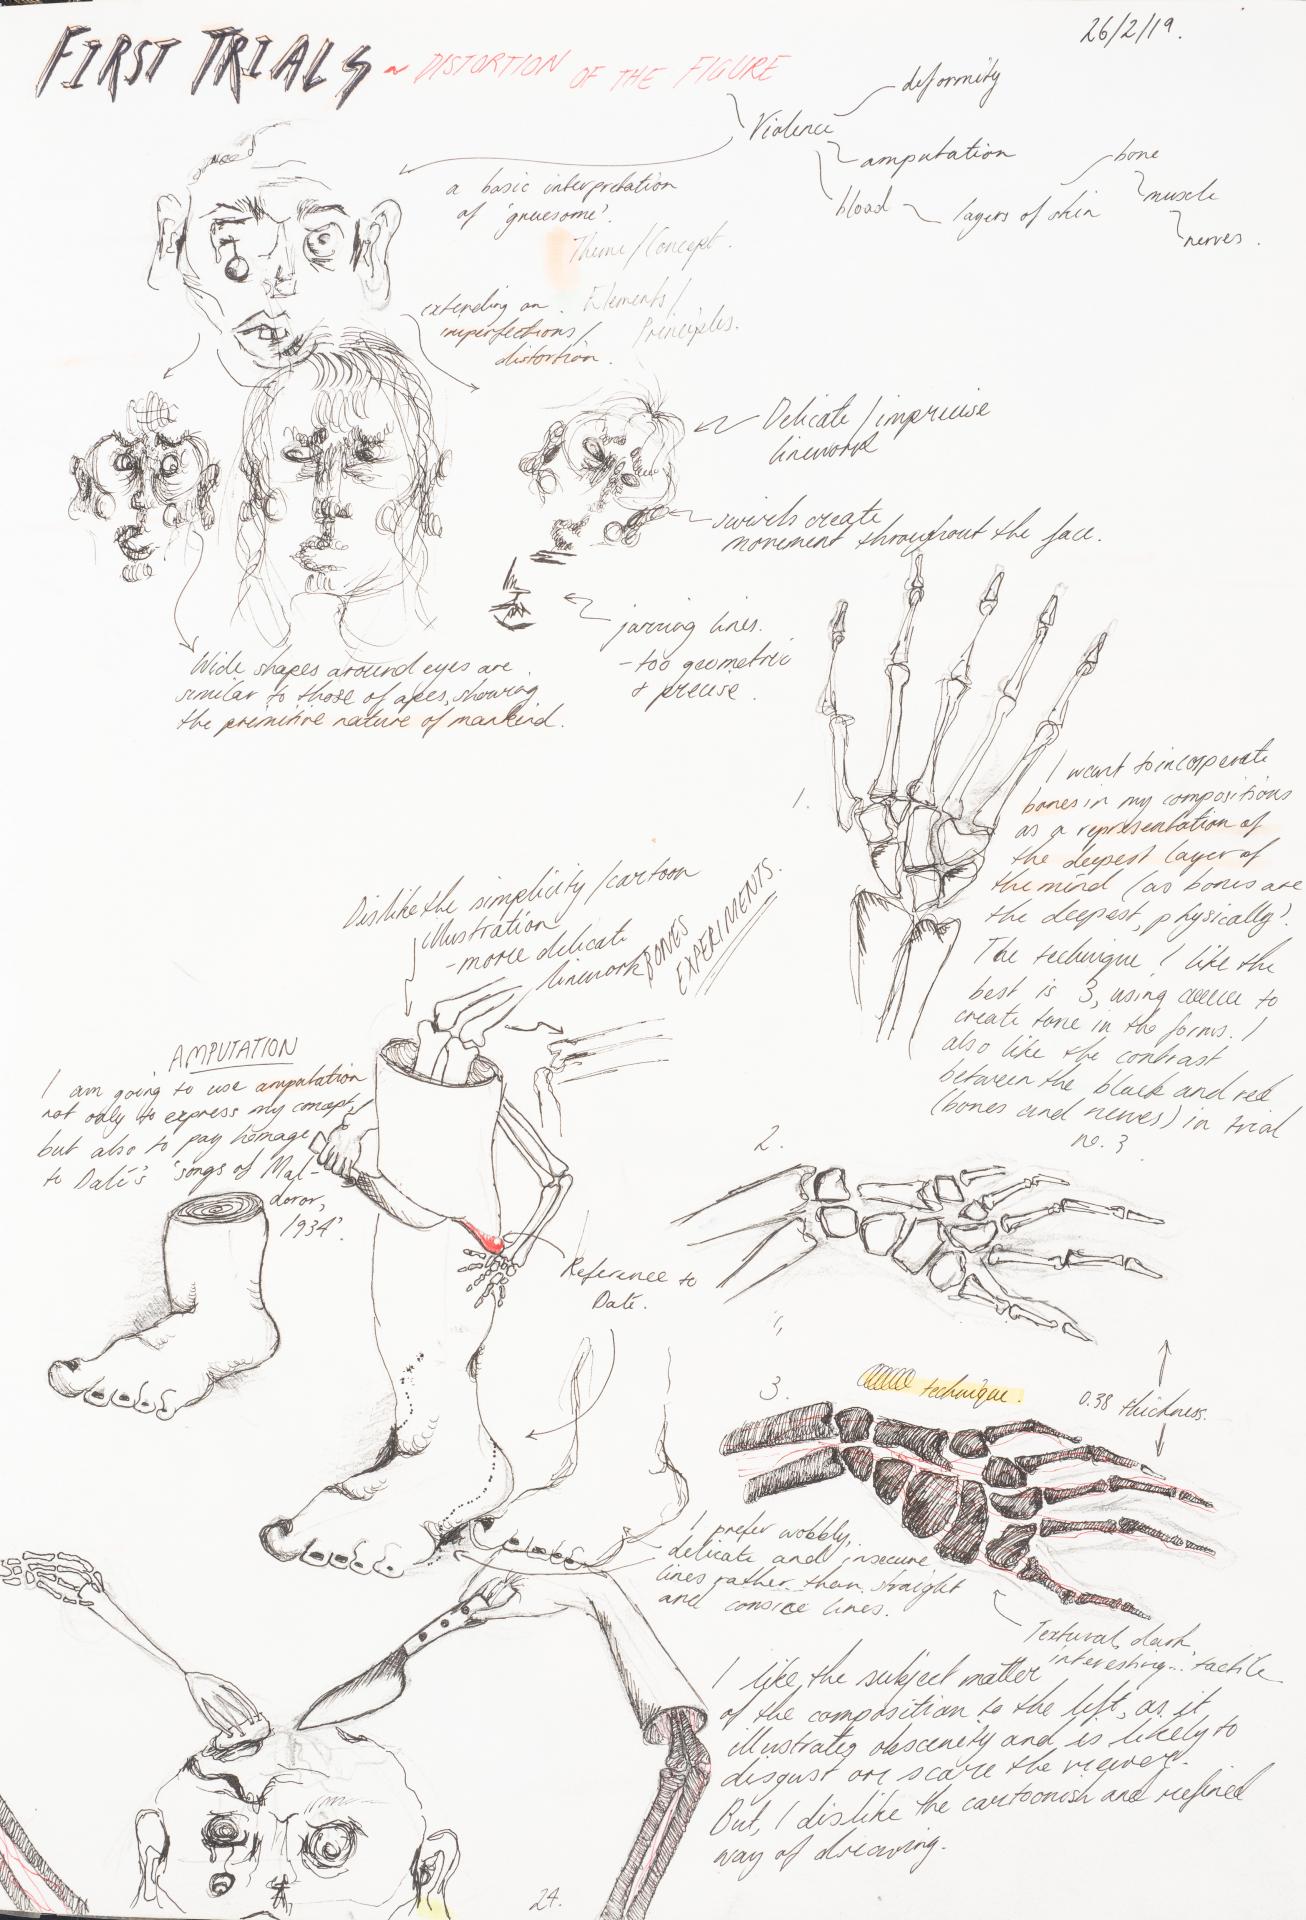 26/2/19.
FIRST TRIALS ~ DISTORTION OF THE FIGURE
Violence
deformity
amputation
blood
layers of skin
bone
muscle
nerves.
a basic interpretation
of 'gruesome'.
Theme/Concept.
extending on
imperfections/
distortion.
Elements/
Principles.
Delicate/imprecise
linework
swirls create
movement throughout the face.
jarring lines.
- too geometric
+ precise.
Wide shapes around eyes are
similar to those of apes, showing
the primitive nature of mankind.
1.
I want to incorporate
bones in my compositions
as a representation of
the deepest layer of
the mind (as bones are
the deepest, physically).
The technique I like the
best is 3, using to
create tone in the forms. I
also like the contrast
between the black and red
(bones and nerves) in trial
no. 3
Dislike the simplicity/cartoon
illustration
- more delicate
linework
BONES
EXPERIMENTS.
AMPUTATION
I am going to use amputation
not only to express my concept,
but also to pay homage
to Dalí's 'songs of Mal-
doror,
1934'.
Reference to
Dalí.
2.
3.
technique.
0.38 thickness.
I prefer wobbly,
delicate and insecure
lines rather than straight
and consice lines.
Textural, dark,
interesting... tactile
I like the subject matter
of the composition to the left, as it
illustrates obscenity and is likely to
disgust or scare the viewer.
But, I dislike the cartoonish and refined
way of drawing.
24.